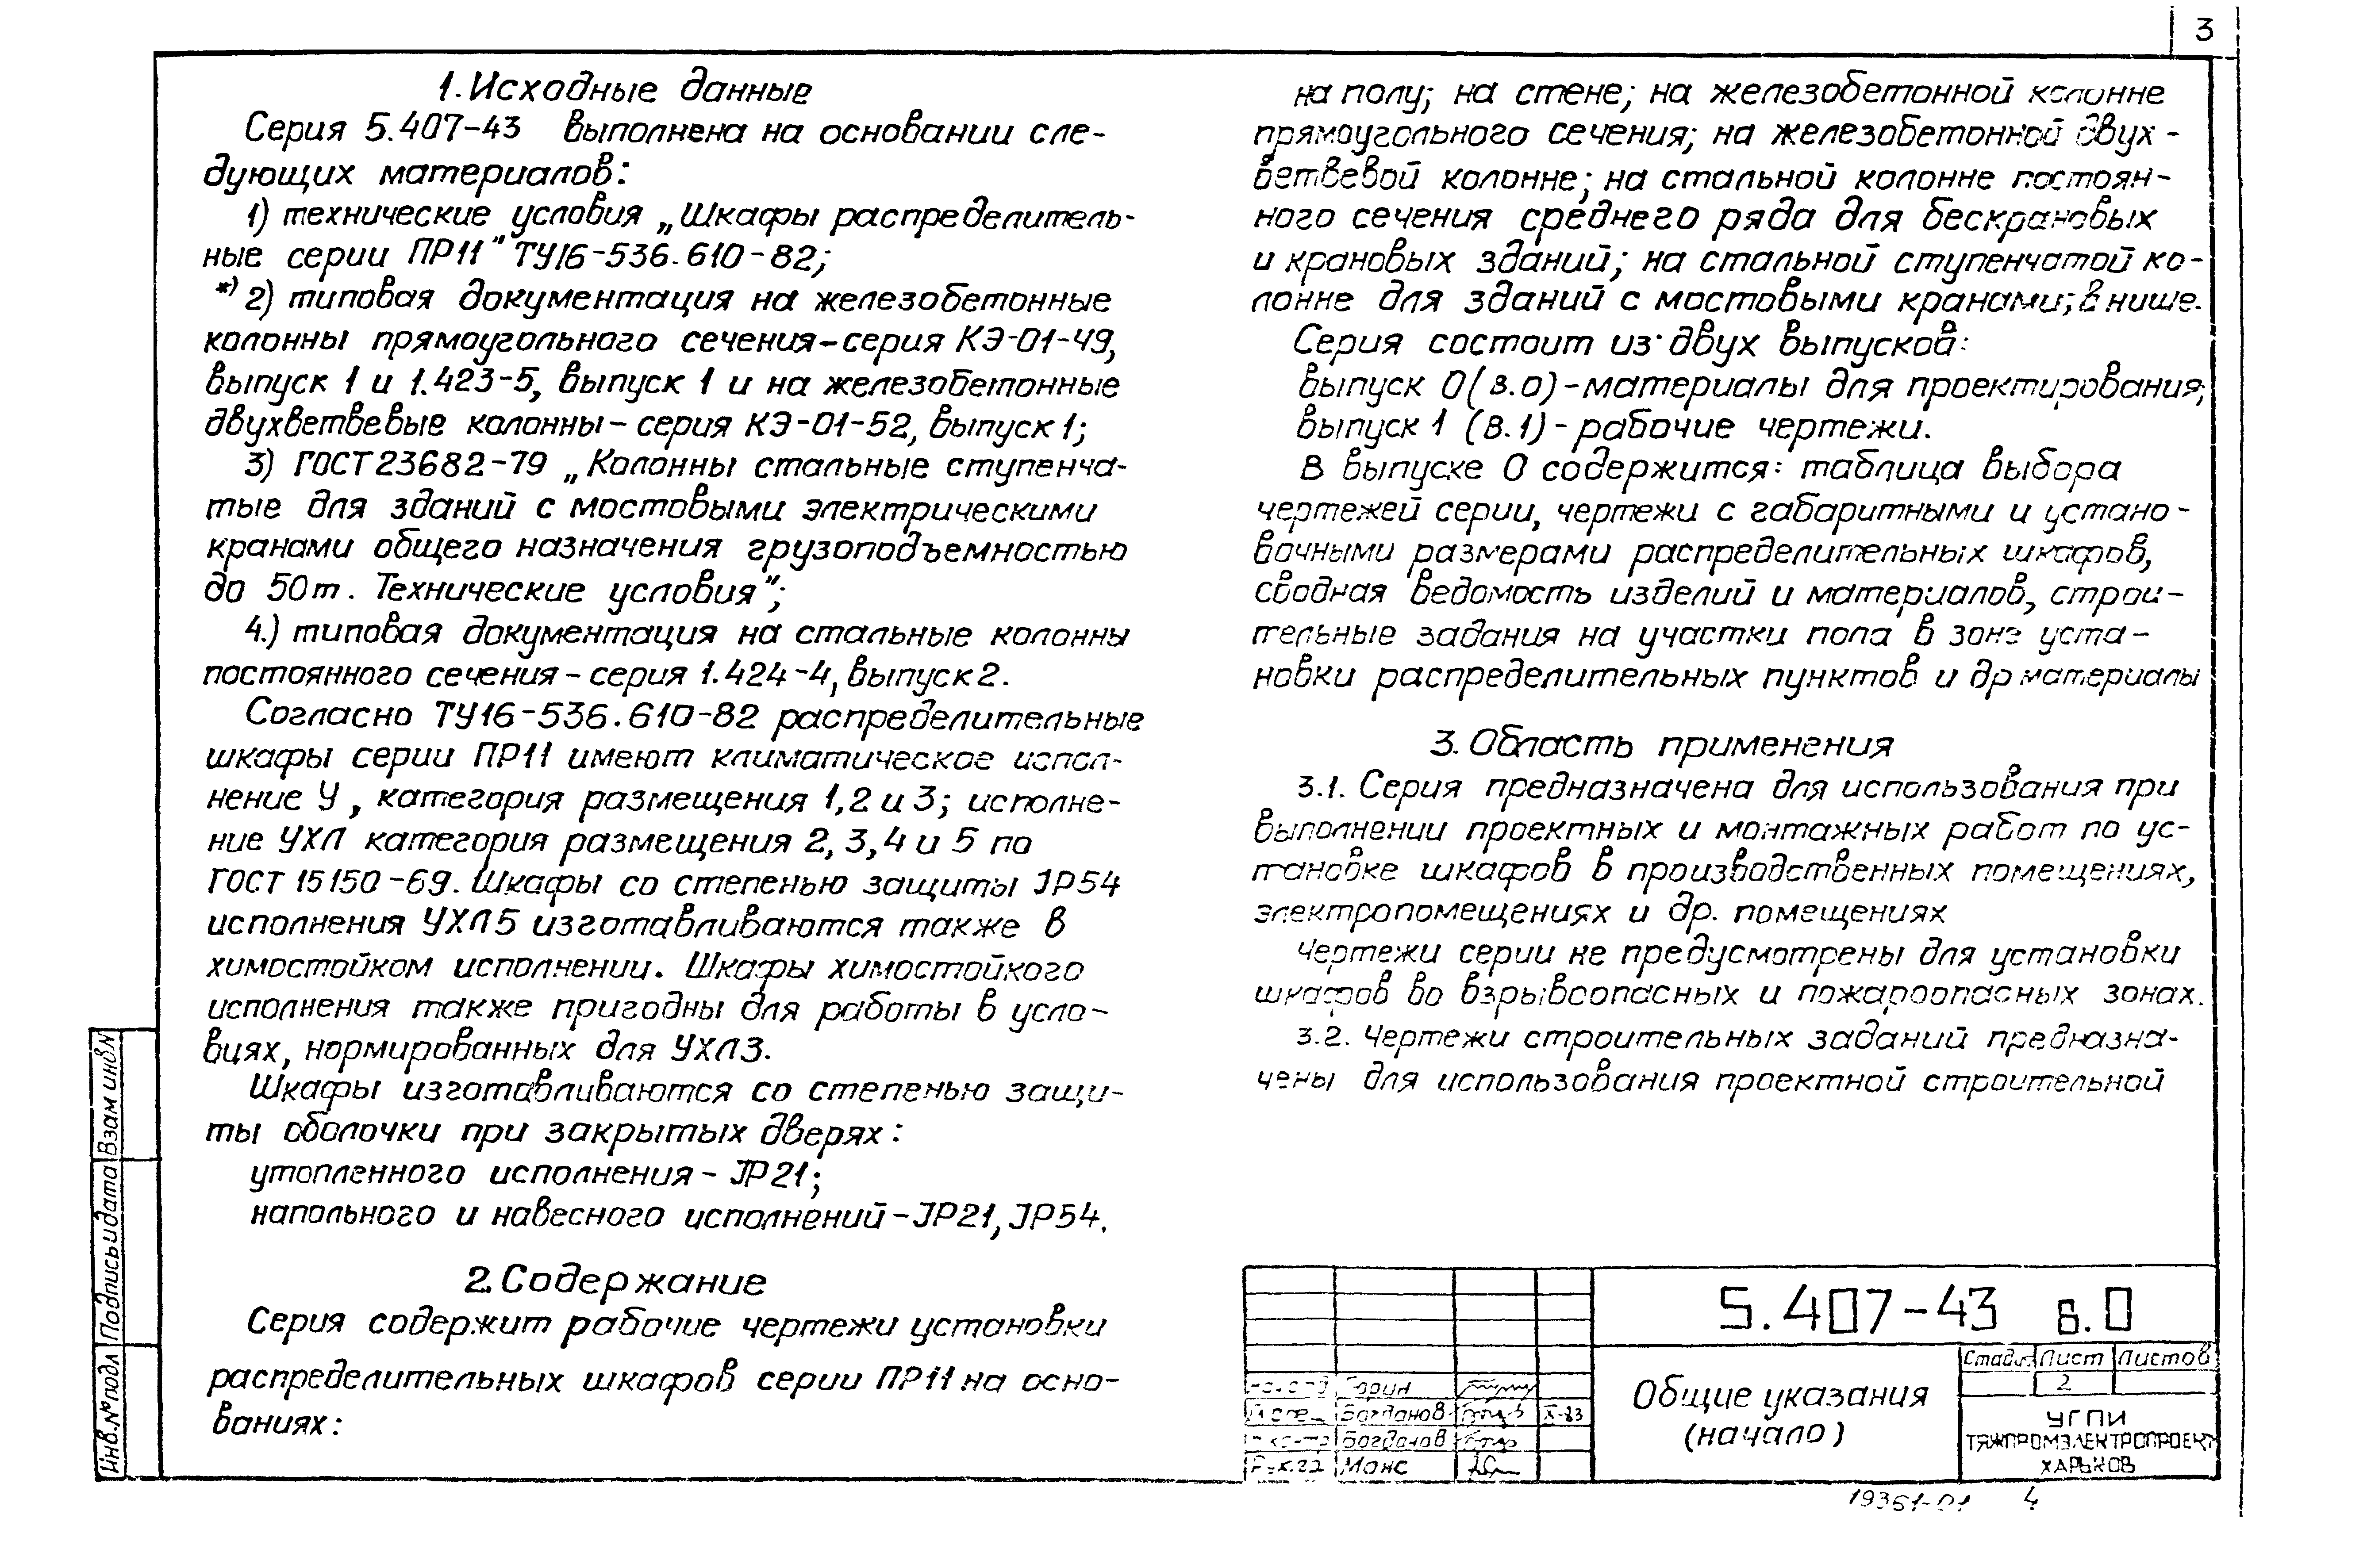 3
1. Исходные данные
Серия 5.407-43 выполнена на основании сле-
дующих материалов:
1) технические условия „Шкафы распределитель-
ные серии ПР11" ТУ16-536.610-82;
*) 2) типовая документация на железобетонные
колонны прямоугольного сечения-серия КЭ-01-49,
выпуск 1 и 1.423-5, выпуск 1 и на железобетонные
двухветвевые колонны - серия КЭ-01-52, выпуск 1;
3) ГОСТ 23682-79 „Колонны стальные ступенча-
тые для зданий с мостовыми электрическими
кранами общего назначения грузоподъемностью
до 50т. Технические условия";
4.) типовая документация на стальные колонны
постоянного сечения - серия 1.424-4, выпуск 2.
Согласно ТУ16-536.610-82 распределительные
шкафы серии ПР11 имеют климатическое испол-
нение У, категория размещения 1,2 и 3; исполне-
ние УХЛ категория размещения 2, 3, 4 и 5 по
ГОСТ 15150-69. Шкафы со степенью защиты JP54
исполнения УХЛ5 изготавливаются также в
химостойком исполнении. Шкафы химостойкого
исполнения также пригодны для работы в усло-
виях, нормированных для УХЛ3.
Шкафы изготавливаются со степенью защи-
ты оболочки при закрытых дверях:
утопленного исполнения - JP21;
напольного и навесного исполнений - JP21, JP54.
2. Содержание
Серия содержит рабочие чертежи установки
распределительных шкафов серии ПР11 на осно-
ваниях:
на полу; на стене; на железобетонной колонне
прямоугольного сечения; на железобетонной двух-
ветвевой колонне; на стальной колонне постоян-
ного сечения среднего ряда для бескрановых
и крановых зданий; на стальной ступенчатой ко-
лонне для зданий с мостовыми кранами; в нише.
Серия состоит из двух выпусков:
выпуск 0 (в.0) - материалы для проектирования;
выпуск 1 (в.1) - рабочие чертежи.
В выпуске 0 содержится: таблица выбора
чертежей серии, чертежи с габаритными и устано-
вочными размерами распределительных шкафов,
сводная ведомость изделий и материалов, строи-
тельные задания на участки пола в зоне уста-
новки распределительных пунктов и др материалы
3. Область применения
3.1. Серия предназначена для использования при
выполнении проектных и монтажных работ по ус-
тановке шкафов в производственных помещениях,
электропомещениях и др. помещениях
Чертежи серии не предусмотрены для установки
шкафов во взрывоопасных и пожароопасных зонах.
3.2. Чертежи строительных заданий предназна-
чены для использования проектной строительной
Инв.№подл Подпись и дата Взам инв№
5.407-43 в.0
Общие указания
(начало)
Стадия Лист Листов
2
УГПИ
ТЯЖПРОМЭЛЕКТРОПРОЕКТ
ХАРЬКОВ
Гарин
Богданов X-83
Богданов
Манс
19361-01 4